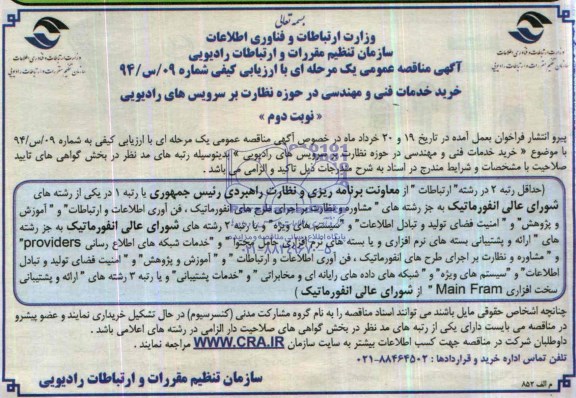 بسمه تعالی
وزارت ارتباطات و فناوری اطلاعات
سازمان تنظیم مقررات و ارتباطات رادیویی
آگهی مناقصه عمومی یک مرحله ای با ارزیابی کیفی شماره ۰۹/س/۹۴
خرید خدمات فنی و مهندسی در حوزه نظارت بر سرویس های رادیویی
« نوبت دوم »
پیرو انتشار فراخوان بعمل آمده در تاریخ ۱۹ و ۲۰ خرداد ماه در خصوص آگهی مناقصه عمومی یک مرحله ای با ارزیابی کیفی به شماره ۰۹/س/۹۴
با موضوع « خرید خدمات فنی و مهندسی در حوزه نظارت بر سرویس های رادیویی » بدینوسیله رتبه های مد نظر در بخش گواهی های تایید
صلاحیت با مشخصات و شرایط مندرج در اسناد به شرح مندرجات ذیل تاکید و الزامی می باشد .
(حداقل رتبه ۲ در رشته" ارتباطات " از معاونت برنامه ریزی و نظارت راهبردی رئیس جمهوری یا رتبه ۱ در یکی از رشته های
شورای عالی انفورماتیک به جز رشته های " مشاوره و نظارت بر اجرای طرح های انفورماتیک ، فن آوری اطلاعات و ارتباطات" و " آموزش
و پژوهش " و " امنیت فضای تولید و تبادل اطلاعات" و "سیستم های ویژه" و یا رتبه ۲ رشته های شورای عالی انفورماتیک به جز رشته
های " ارائه و پشتیبانی بسته های نرم افزاری و یا بسته های نرم افزاری حامل محتوا" و "خدمات شبکه های اطلاع رسانی providers"
و " مشاوره و نظارت بر اجرای طرح های انفورماتیک ، فن آوری اطلاعات و ارتباطات " و " آموزش و پژوهش " و " امنیت فضای تولید و تبادل
اطلاعات" و "سیستم های ویژه" و " شبکه های داده های رایانه ای و مخابراتی " و "خدمات پشتیبانی" و یا رتبه ۳ رشته های " ارائه و پشتیبانی
سخت افزاری Main Fram " از شورای عالی انفورماتیک )
چنانچه اشخاص حقوقی مایل باشند می توانند اسناد مناقصه را به نام گروه مشارکت مدنی (کنسرسیوم) در حال تشکیل خریداری نمایند و عضو پیشرو
در مناقصه می بایست دارای یکی از رتبه های مد نظر در بخش گواهی های صلاحیت دار الزامی در رشته های اعلامی باشد .
داوطلبان شرکت در مناقصه جهت کسب اطلاعات بیشتر به سایت سازمان WWW.CRA.IR مراجعه نمایند .
تلفن تماس اداره خرید و قراردادها : ۸۸۴۶۴۵۰۲-۰۲۱
سازمان تنظیم مقررات و ارتباطات رادیویی
م الف ۸۵۲